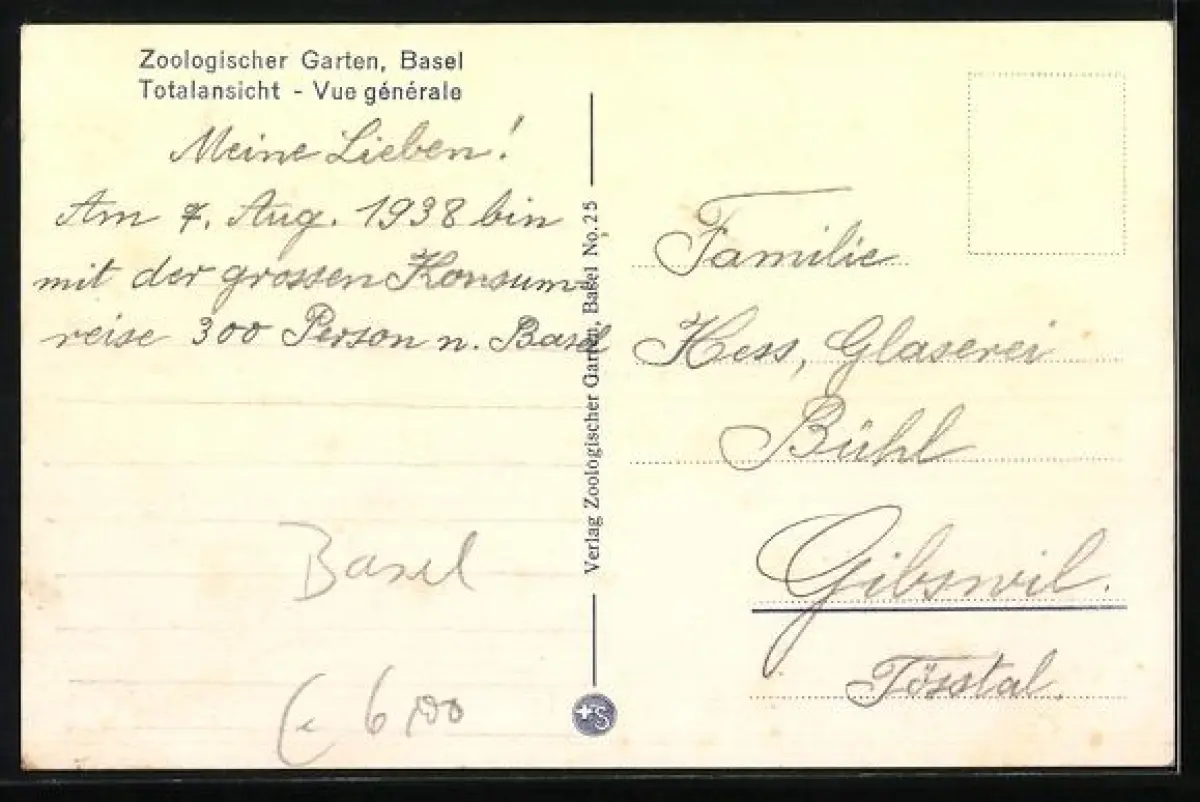 Zoologischer Garten, Basel
Totalansicht - Vue générale
Meine Lieben!
Am 7. Aug. 1938 bin
mit der grossen Konsum-
reise 300 Person n. Basel
Basel
6,00
Verlag Zoologischer Garten, Basel No. 25
+S
Familie
Hess, Glaserei
Bühl
Gibswil.
Tösstal.